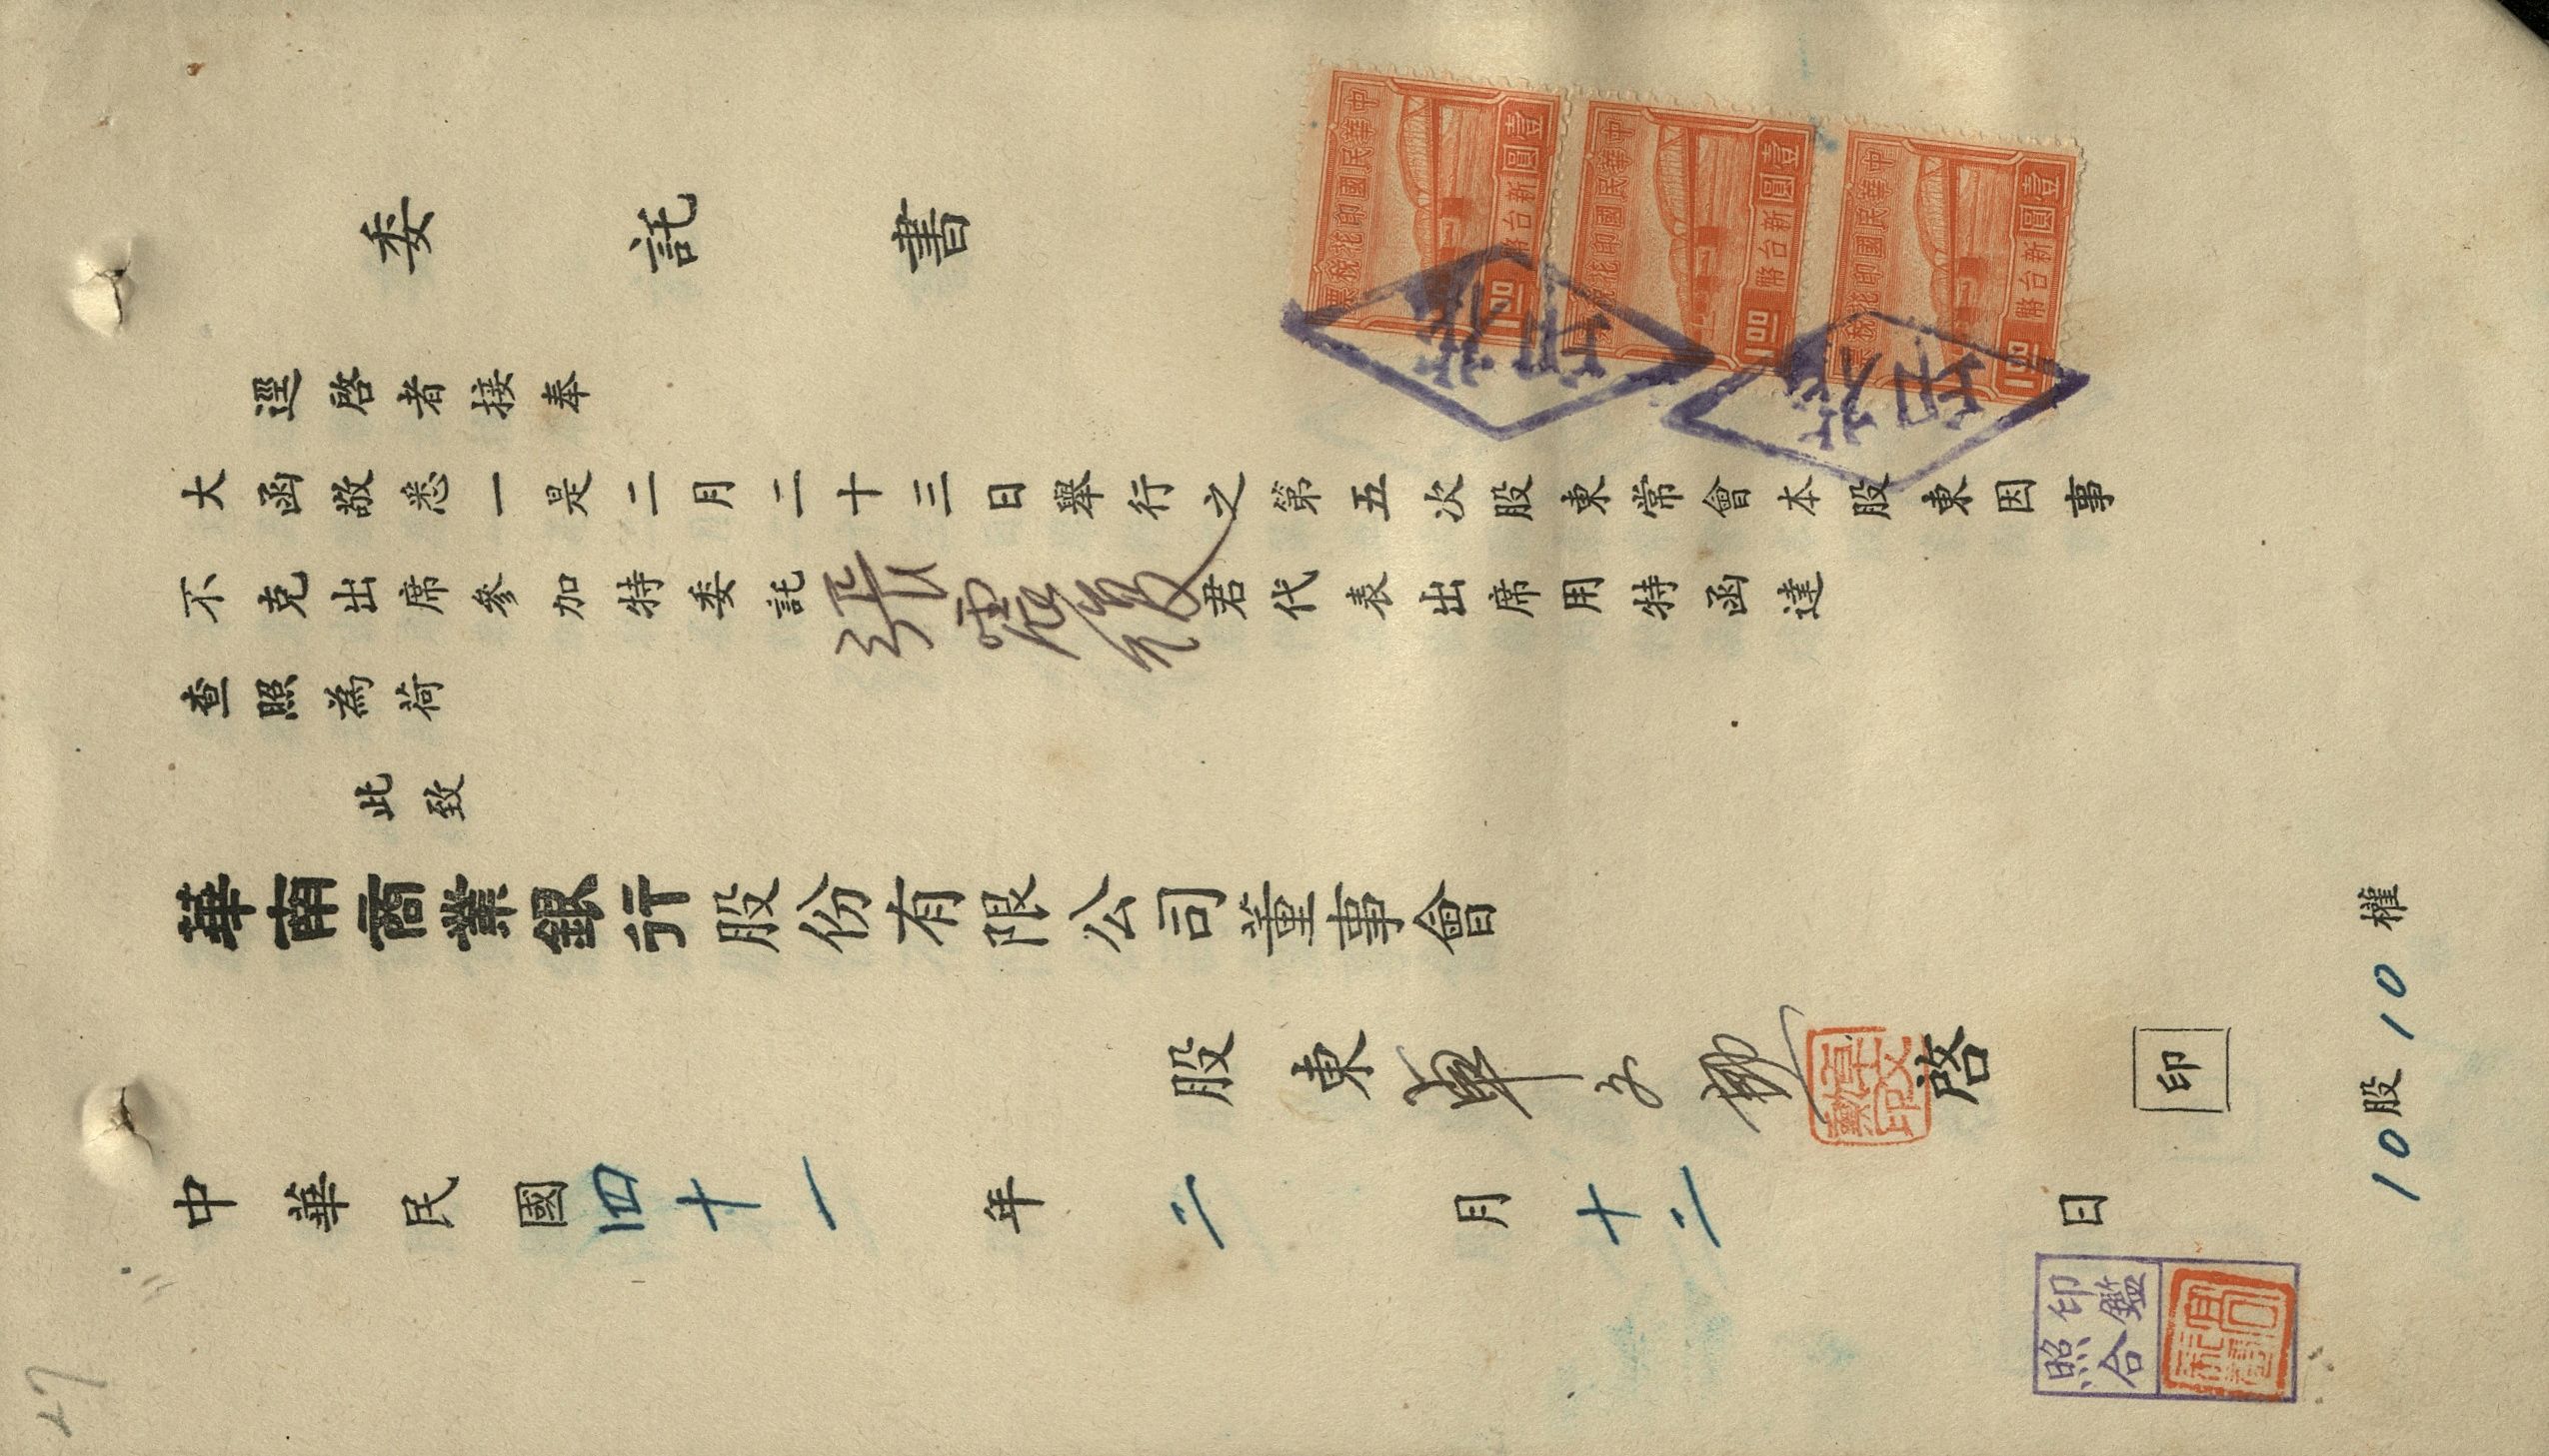 委託書
逕啓者接奉
大函敬悉一是二月二十三日舉行之第五次股東常會本股東因事
不克出席參加特委託張 君代表出席用特函達
查照為荷
此致
華南商業銀行股份有限公司董事會
股東 啓 印
中華民國四十一年二月十二日
10股10權
中華民國印花稅票
壹圓 新台幣
1.00
中華民國印花稅票
壹圓 新台幣
1.00
中華民國印花稅票
壹圓 新台幣
1.00
印花
印花
印鑑
照合
27